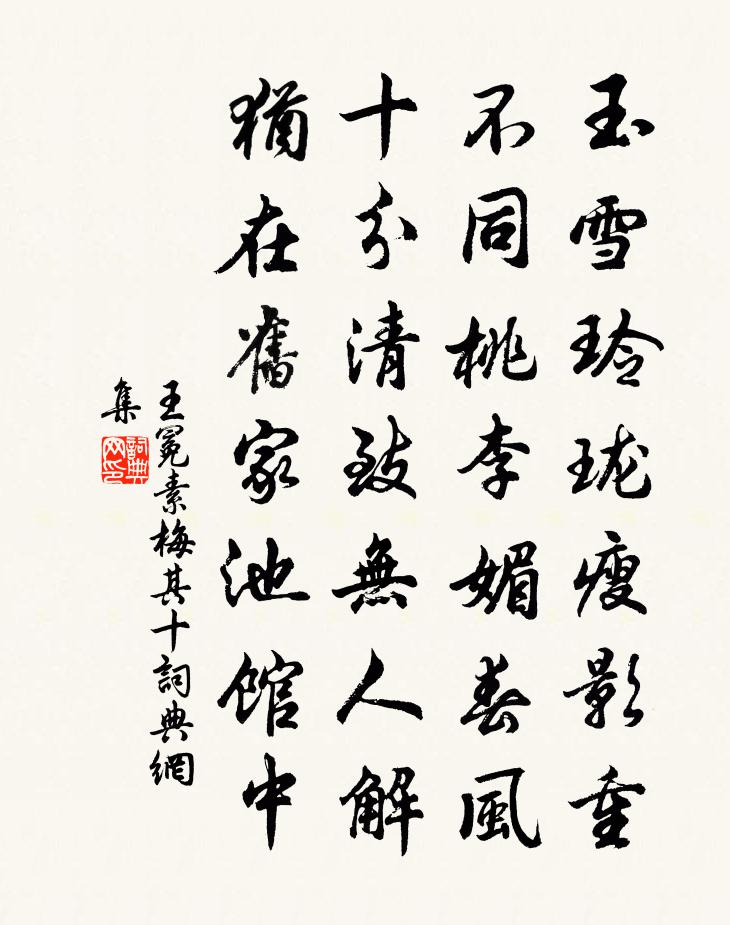 玉雪玲珑瘦影重
不同桃李媚春風
十分清致無人解
猶在舊家池館中
王冕素梅其十詞典網
集
詞典網印